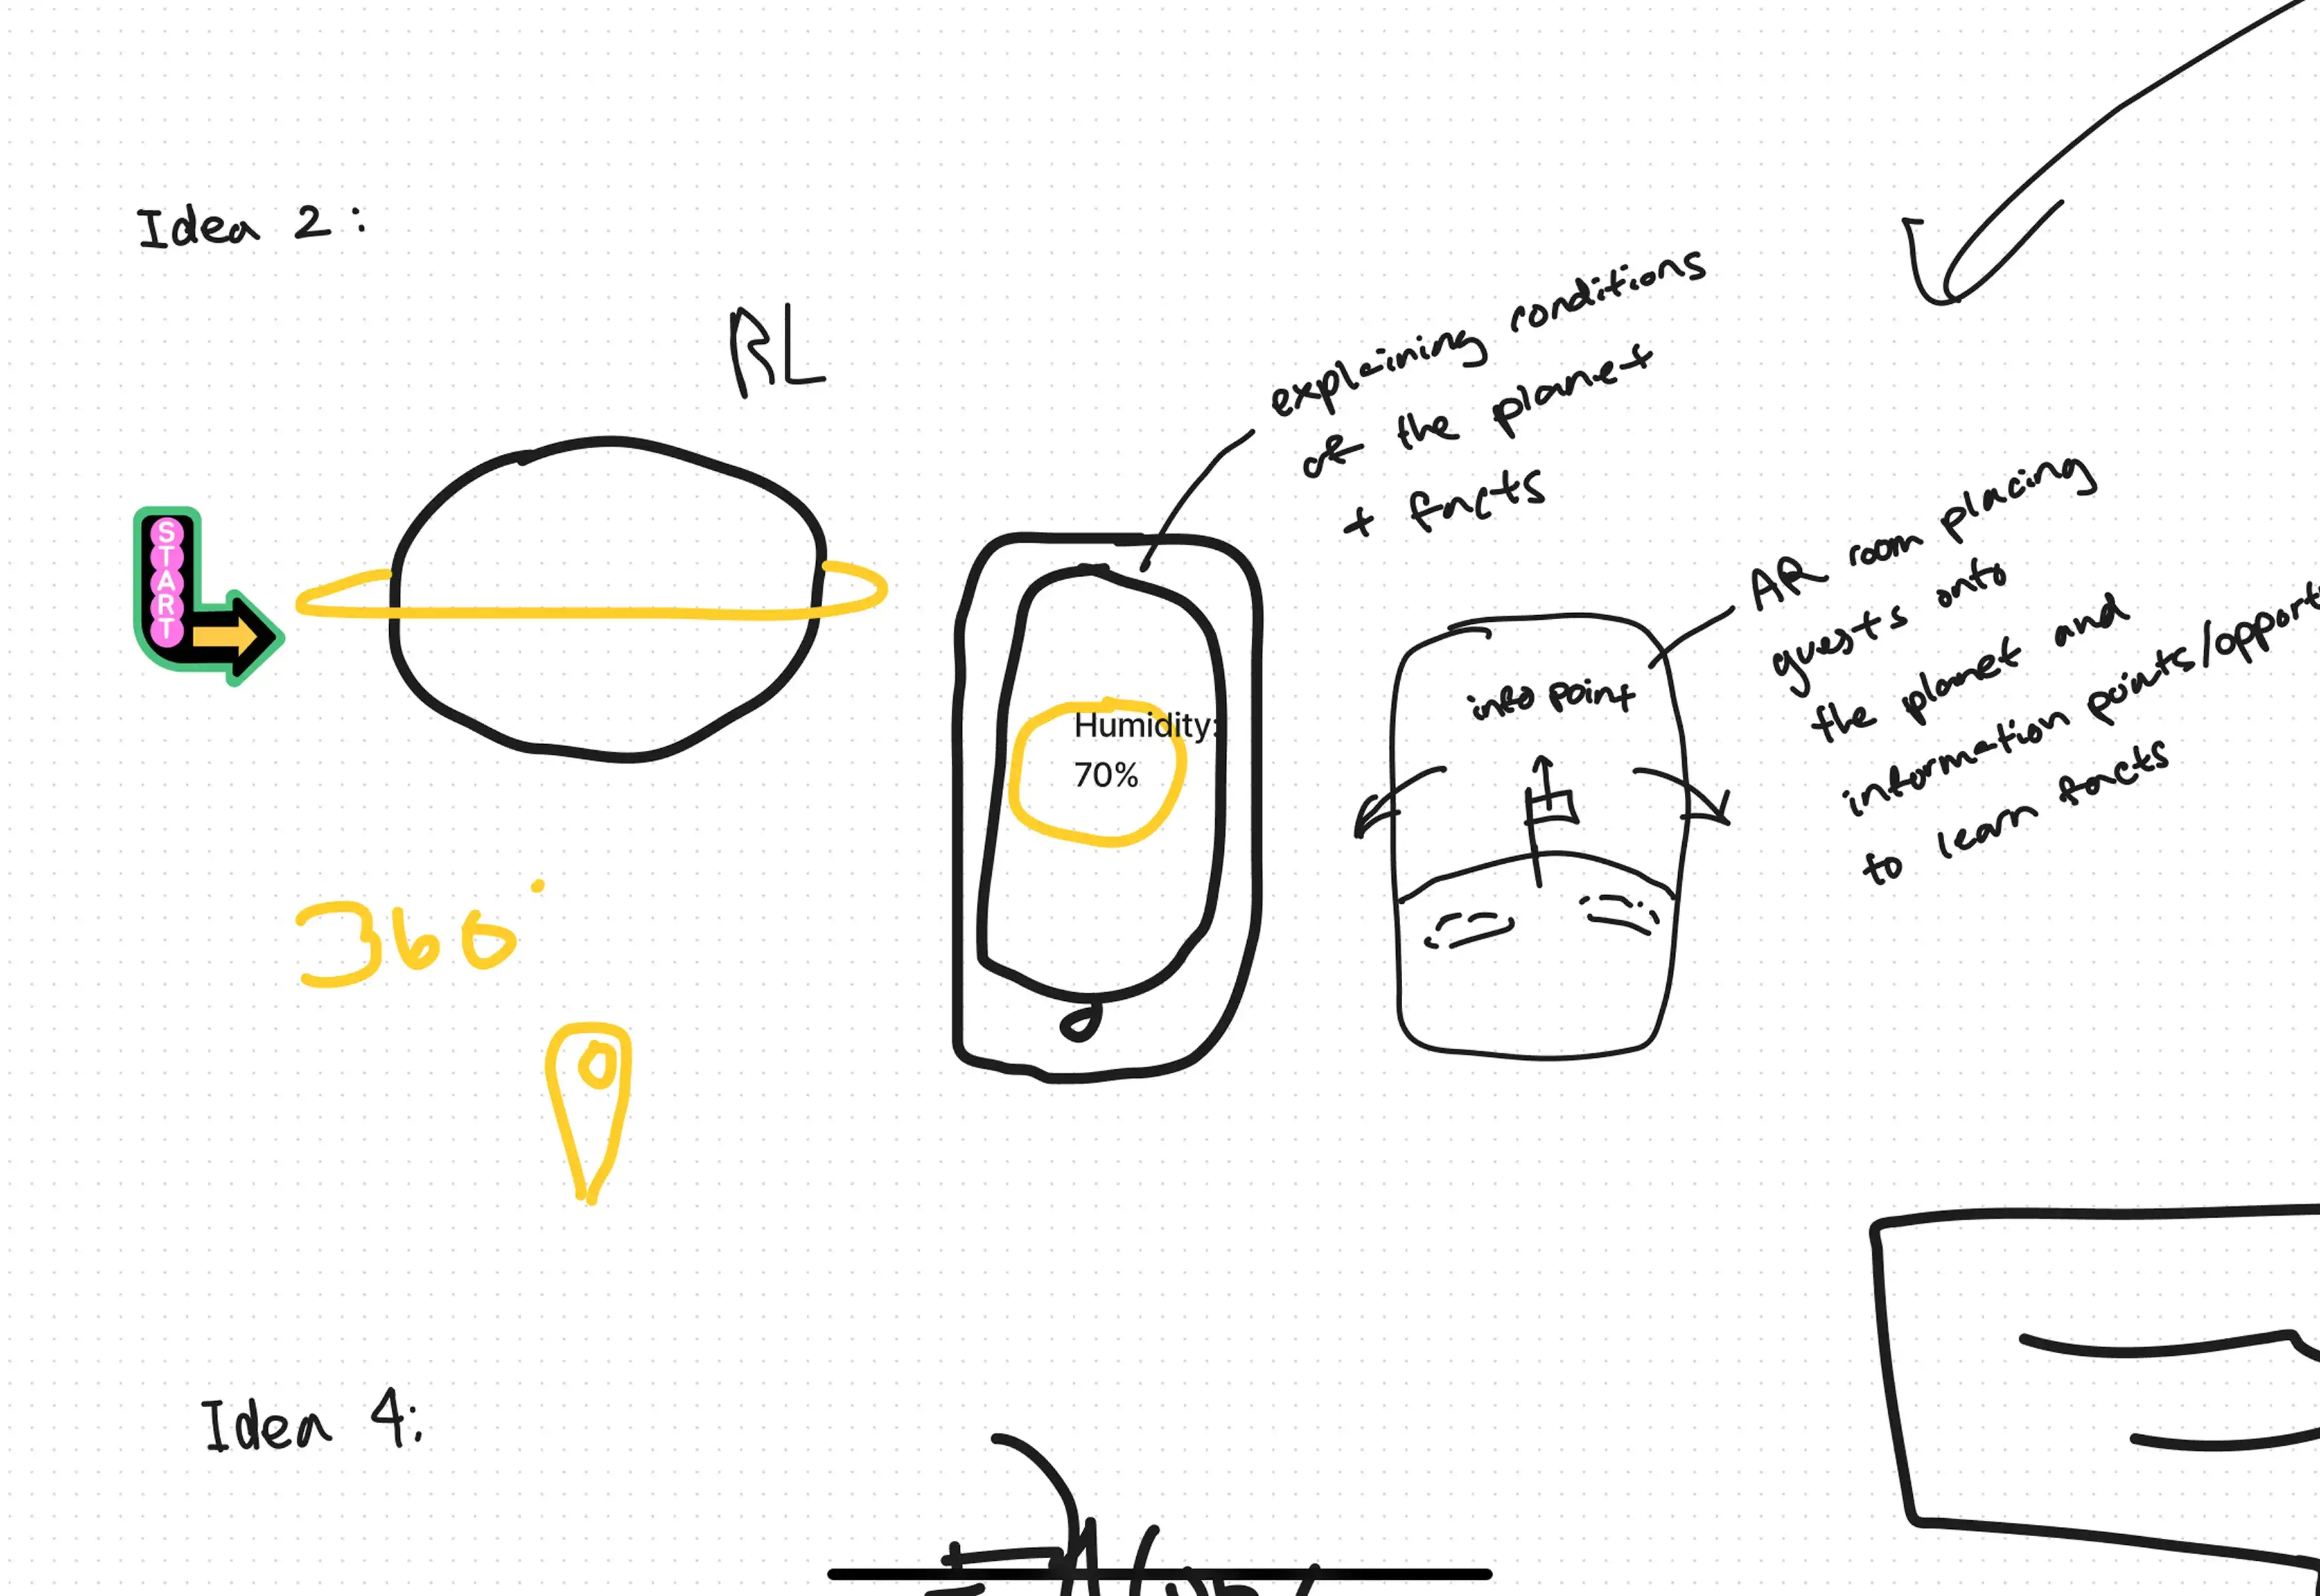 Idea 2:
RL
START
explaining conditions
of the planet
+ facts
Humidity:
70%
info point
AR room placing
guests onto
the planet and
information points/opport
to learn facts
360°
Idea 4: